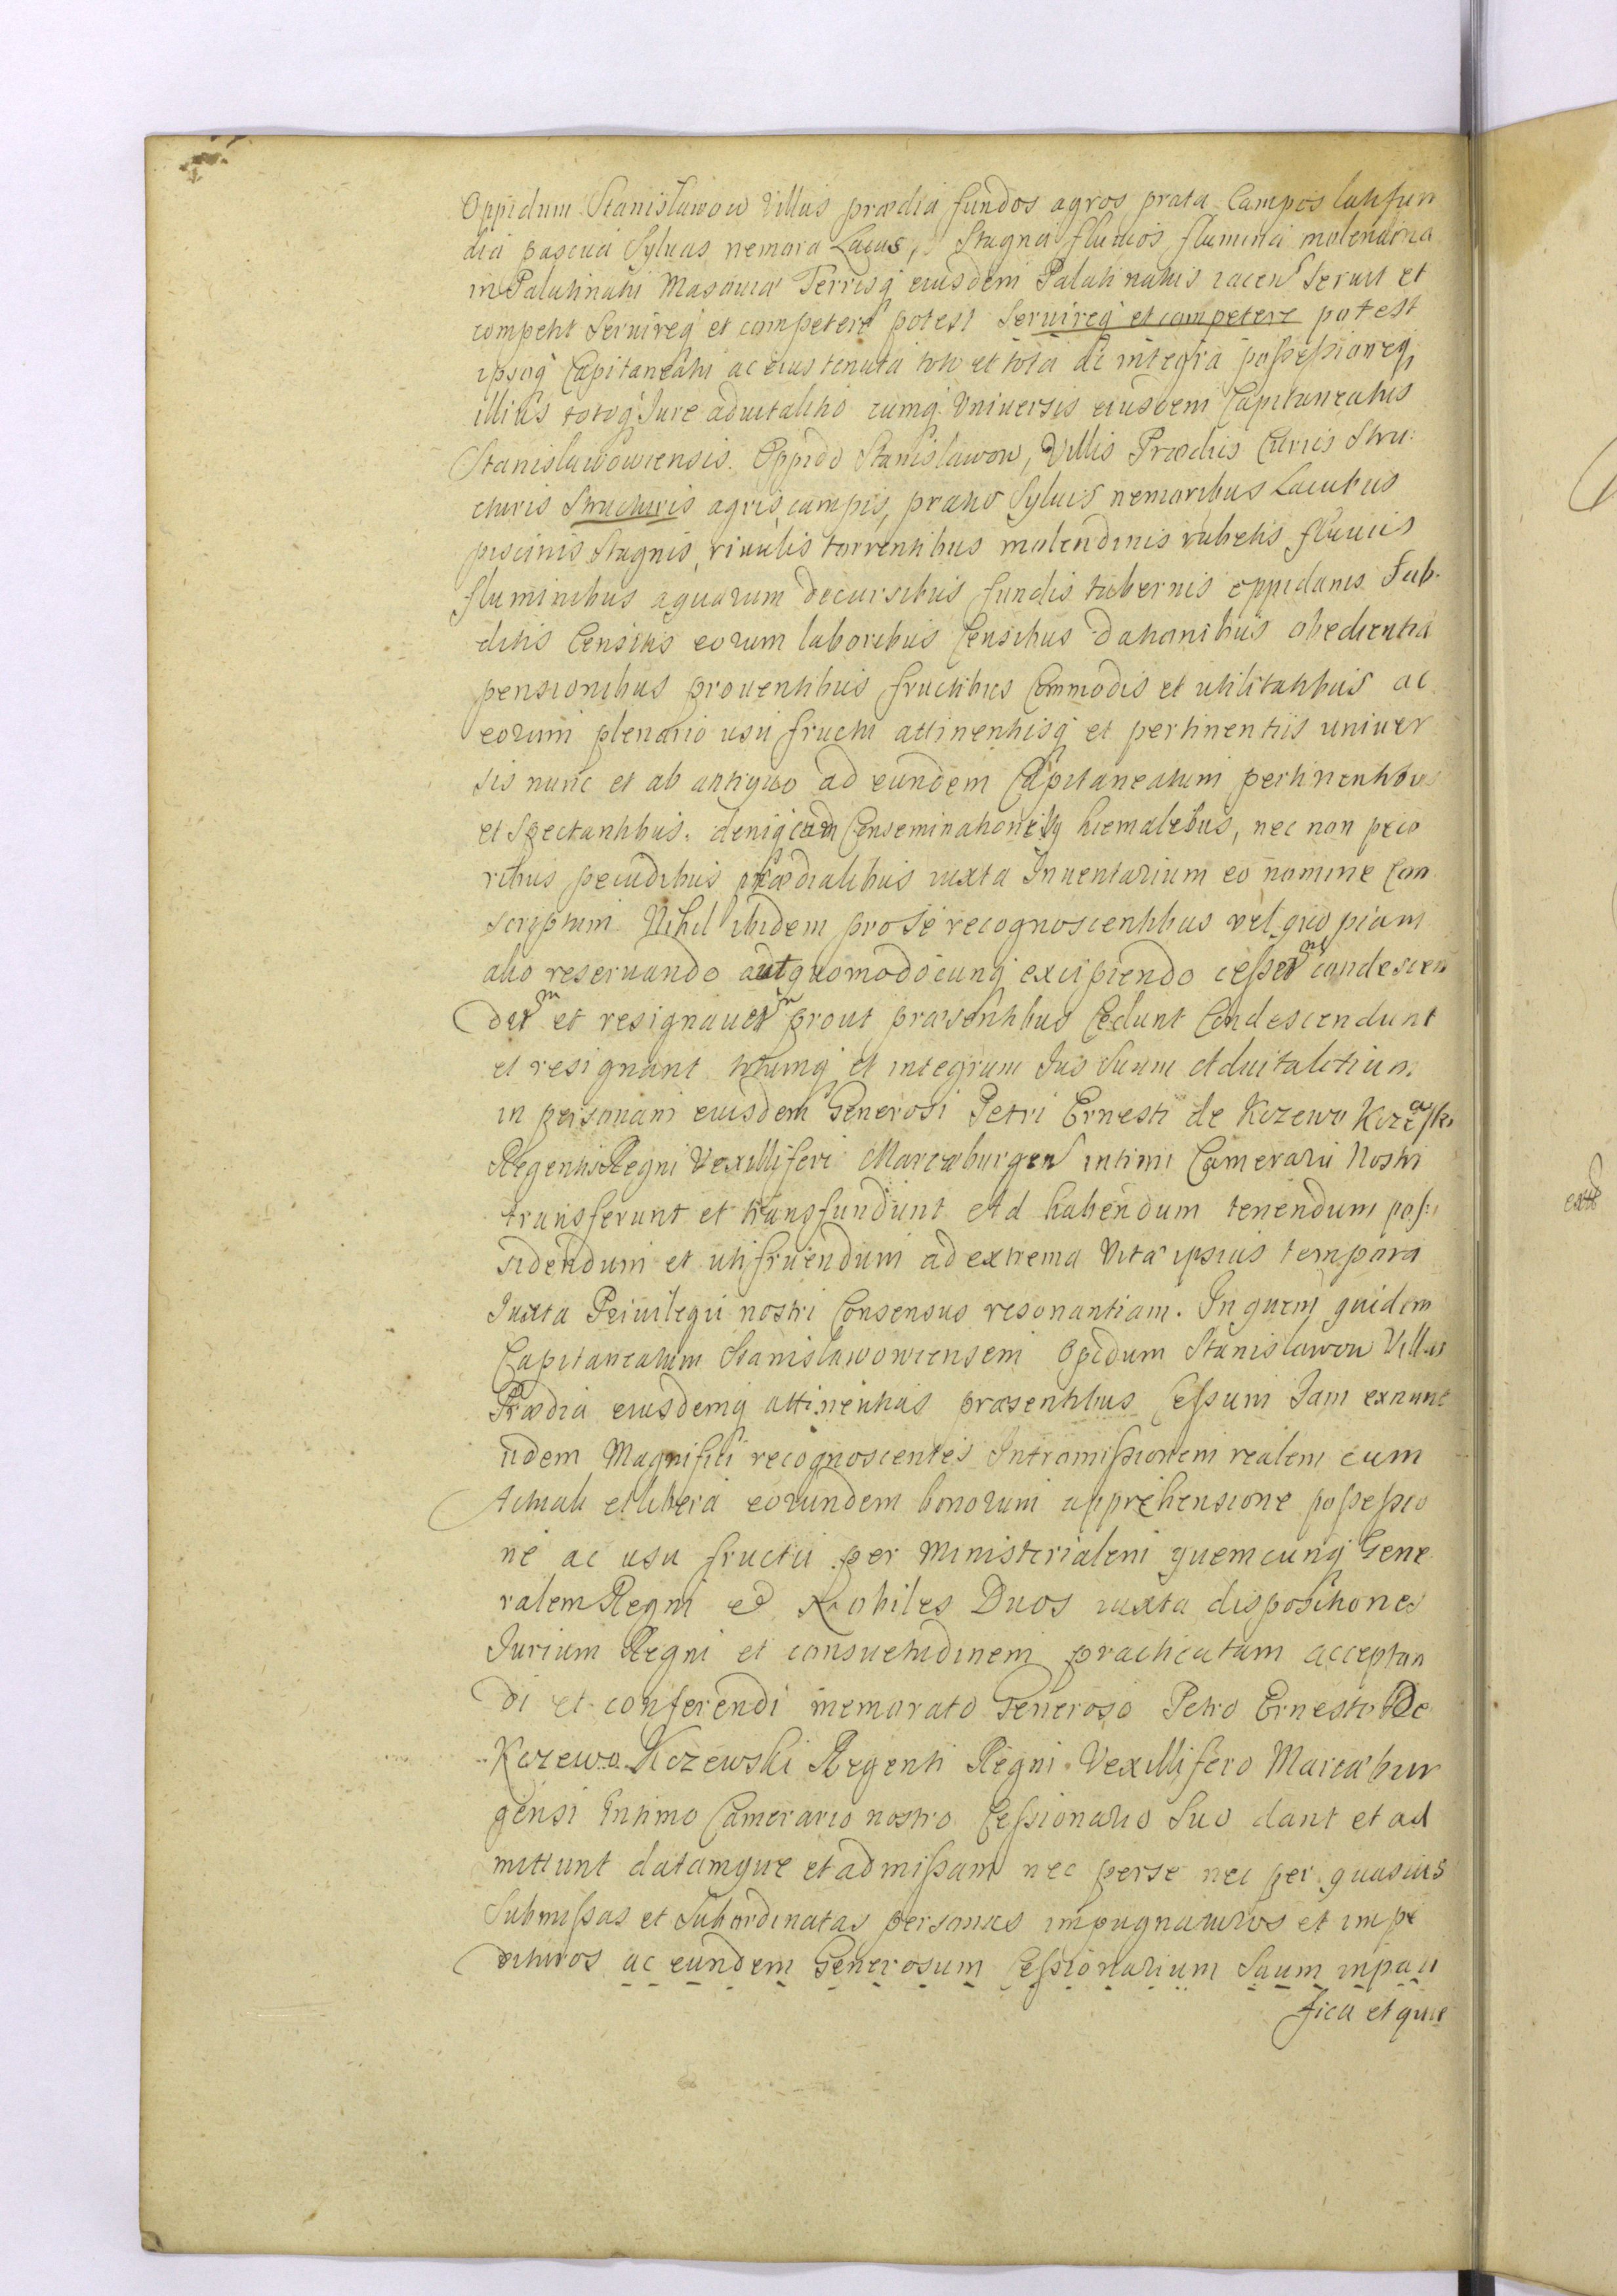 Oppidum Stanisławow Villas prædia fundos agros prata Campos latifun
dia pascua Syluas nemora Lacus, Stagna fluuios flumina molendina
in Palatinatu Masouiæ Terrisq eiusdem Palatinatus iacen Seruit et
competit Seruireq et competere potest Seruireq et competere potest
ipsoq Capitaneatu ac eius tenuta toto et tota ac integra possessioneq
illius totoq Iure aduitalitio cumq Vniuersis eiusdem Capitaneatus
Stanislawowiensis. Oppido Stanislawow, Villis Prædiis Curiis Stru:
cturis Structuris agris, campis, pratis Syluis nemoribus Lacubus
piscinis Stagnis, riuulis torrentibus molendinis rubetis fluuiis
fluminibus aquarum decursibus fundis tabernis oppidanis Sub-
ditis Censitis eorum laboribus Censibus dationibus obedientia
pensionibus prouentibus fructibus Commodis et utilitatibus ac
eorum plenario usu fructu attinentiisq et pertinentiis uniuer
sis nunc et ab antiquo ad eundem Capitaneatum pertinentibus
et Spectantibus. deniq cum Conseminationibq hiemalibus, nec non peco
ribus pecudibus prædialibus iuxta Inuentarium eo nomine Con
scriptum Nihil ibidem pro se recognoscentibus vel quopiam
alio reseruando aut quomodocunq excipiendo cesser condescen
der et resignauer prout præsentibus Cedunt Condescendunt
et resignant totumq et integrum Ius Suum Aduitalitium
in personam eiusdem Generosi Petri Ernesti de Kczewo Kczewski
Regentis Regni Vexilliferi Mariæburgen intimi Camerarii Nostri
transferunt et transfundunt Ad habendum tenendum pos-
sidendum et utifruendum ad extrema Vitæ ipsius tempora
Iuxta Priuilegii nostri Consensus resonantiam. In quem quidem
Capitaneatum Stanislawowiensem Opidum Stanislawow Villas
Prædia eiusdemq attinentias præsentibus Cessum Iam exnunc
iidem Magnifici recognoscentes Intromissionem realem cum
Actuali et libera eorundem bonorum apprehensione possessio
ne ac usu fructu per Ministerialem quemcunq Gene
ralem Regni et Nobiles Duos iuxta dispositiones
Iurium Regni et consuetudinem practicatam acceptan
di et conferendi memorato Generoso Petro Ernesto De
Kczewo Kczewski Regenti Regni Vexillifero Mariæbur
gensi Intimo Camerario nostro Cessionario Suo dant et ad
mittunt datamque et admissam nec per se nec per quasuis
Submissas et Subordinatas personas impugnaturos et impe
dituros ac eundem Generosum Cessionarium Suum in paci
fica et quie